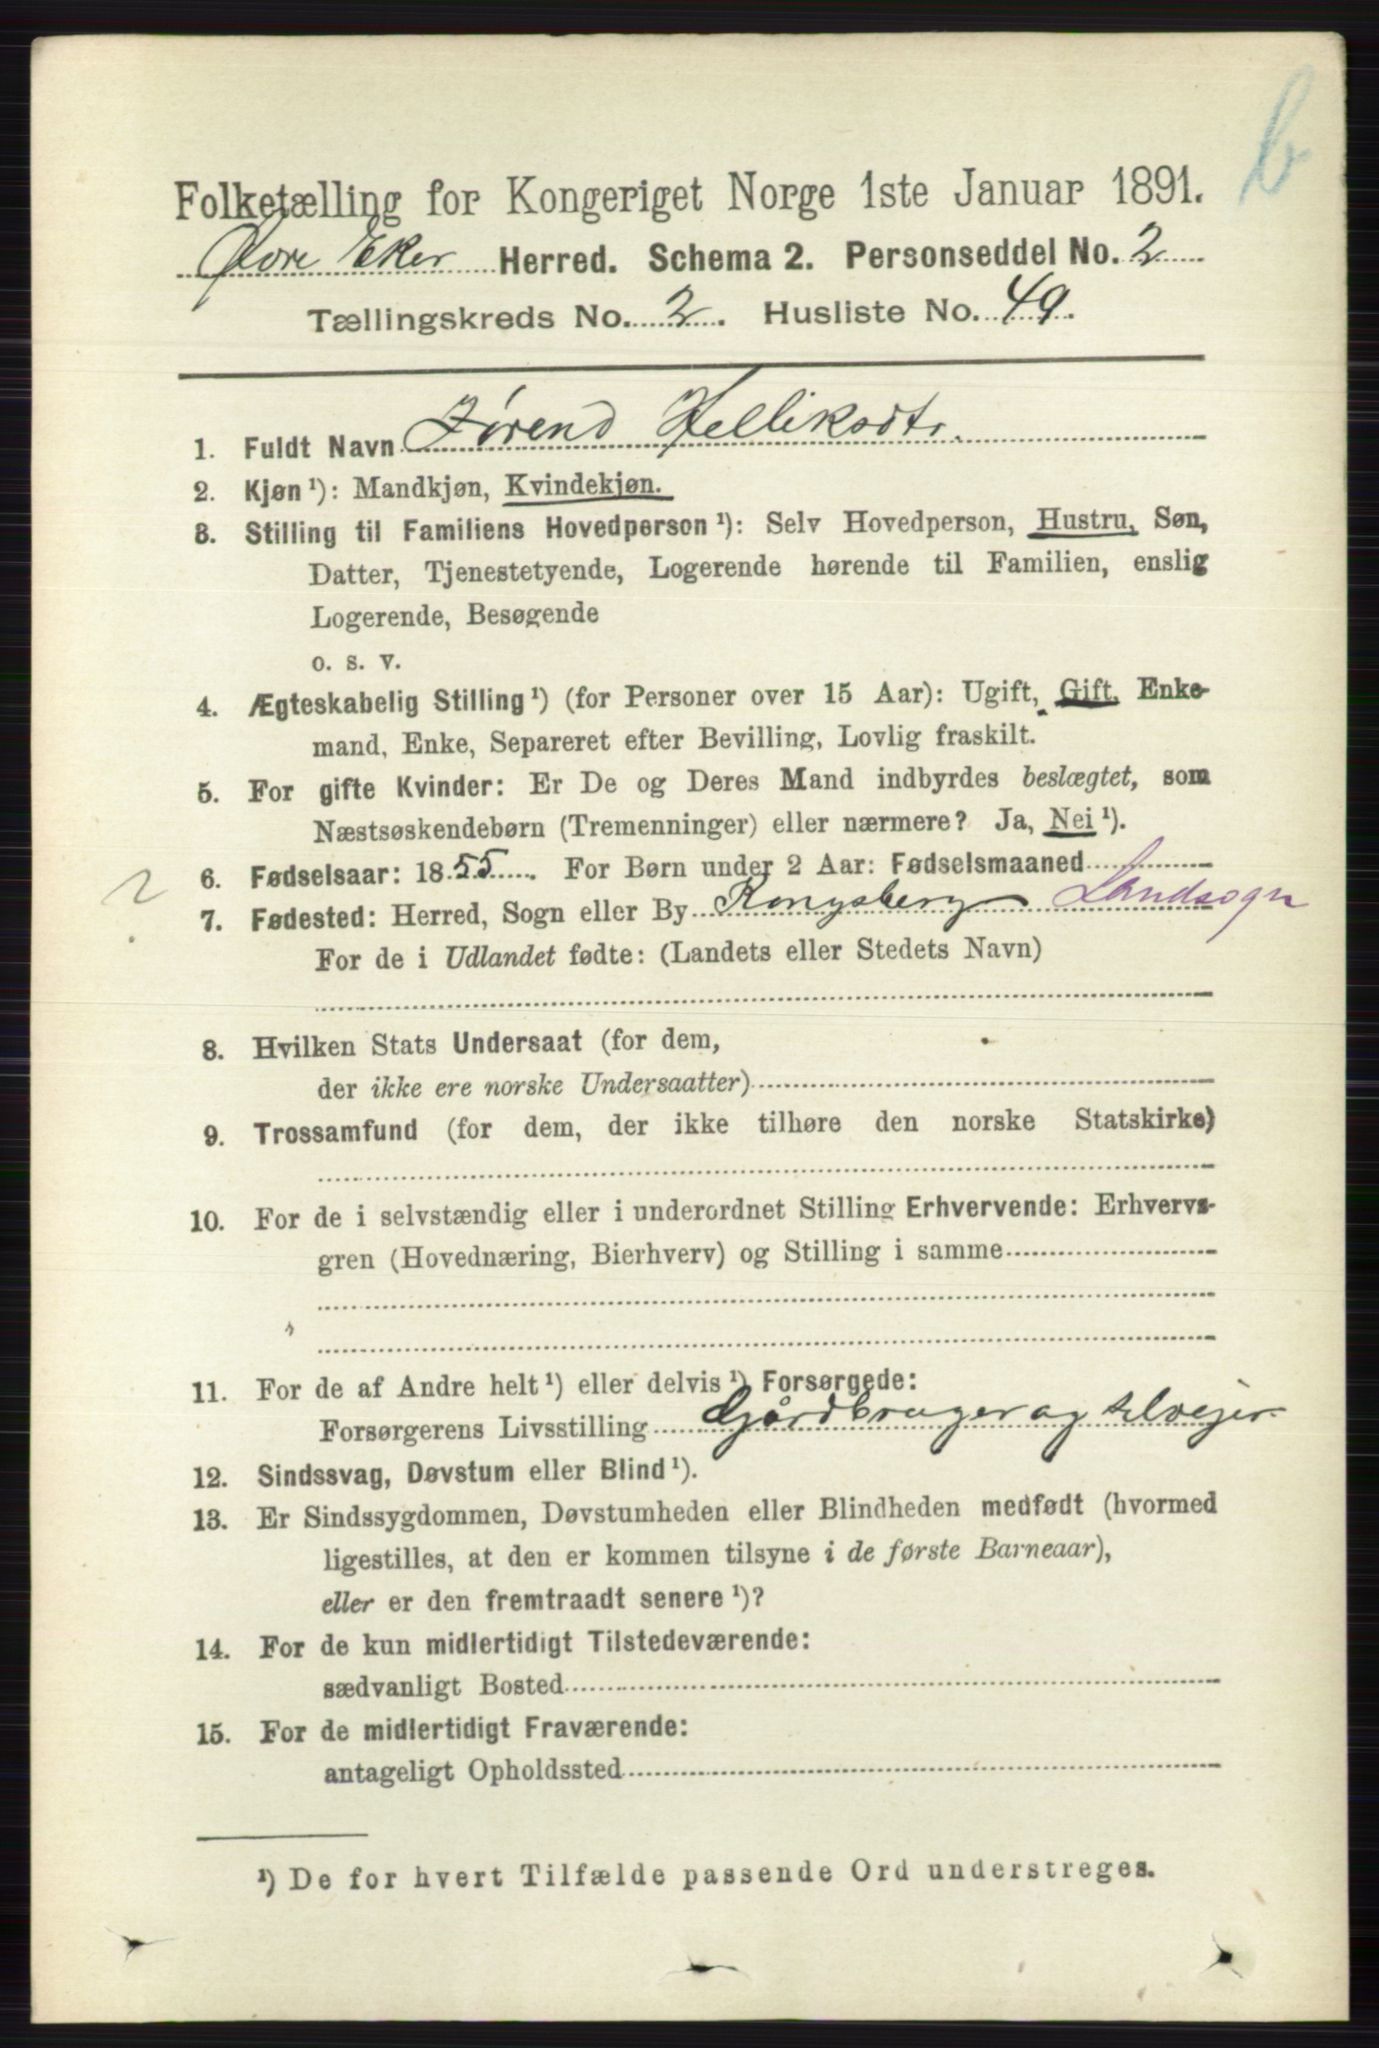 b
Folketælling for Kongeriget Norge 1ste Januar 1891.
Øvre Eker Herred. Schema 2. Personseddel No. 2
Tællingskreds No. 2. Husliste No. 49.
1. Fuldt Navn Jørend Helliksdtr.
2. Kjøn¹): Mandkjøn, Kvindekjøn.
3. Stilling til Familiens Hovedperson¹): Selv Hovedperson, Hustru, Søn,
Datter, Tjenestetyende, Logerende hørende til Familien, enslig
Logerende, Besøgende
o. s. v.
4. Ægteskabelig Stilling¹) (for Personer over 15 Aar): Ugift, Gift, Enke-
mand, Enke, Separeret efter Bevilling, Lovlig fraskilt.
5. For gifte Kvinder: Er De og Deres Mand indbyrdes beslægtet, som
Næstsøskendebørn (Tremenninger) eller nærmere? Ja, Nei¹).
6. Fødselsaar: 1855. For Børn under 2 Aar: Fødselsmaaned
2 7. Fødested: Herred, Sogn eller By Kongsberg Landsogn
For de i Udlandet fødte: (Landets eller Stedets Navn)
8. Hvilken Stats Undersaat (for dem,
der ikke ere norske Undersaatter)
9. Trossamfund (for dem, der ikke tilhøre den norske Statskirke)
10. For de i selvstændig eller i underordnet Stilling Erhvervende: Erhvervs-
gren (Hovednæring, Bierhverv) og Stilling i samme
11. For de af Andre helt¹) eller delvis¹) Forsørgede:
Forsørgerens Livsstilling Gårdbruger og selveier
12. Sindssvag, Døvstum eller Blind¹).
13. Er Sindssygdommen, Døvstumheden eller Blindheden medfødt (hvormed
ligestilles, at den er kommen tilsyne i de første Barneaar),
eller er den fremtraadt senere¹)?
14. For de kun midlertidigt Tilstedeværende:
sædvanligt Bosted
15. For de midlertidigt Fraværende:
antageligt Opholdssted
¹) De for hvert Tilfælde passende Ord understreges.